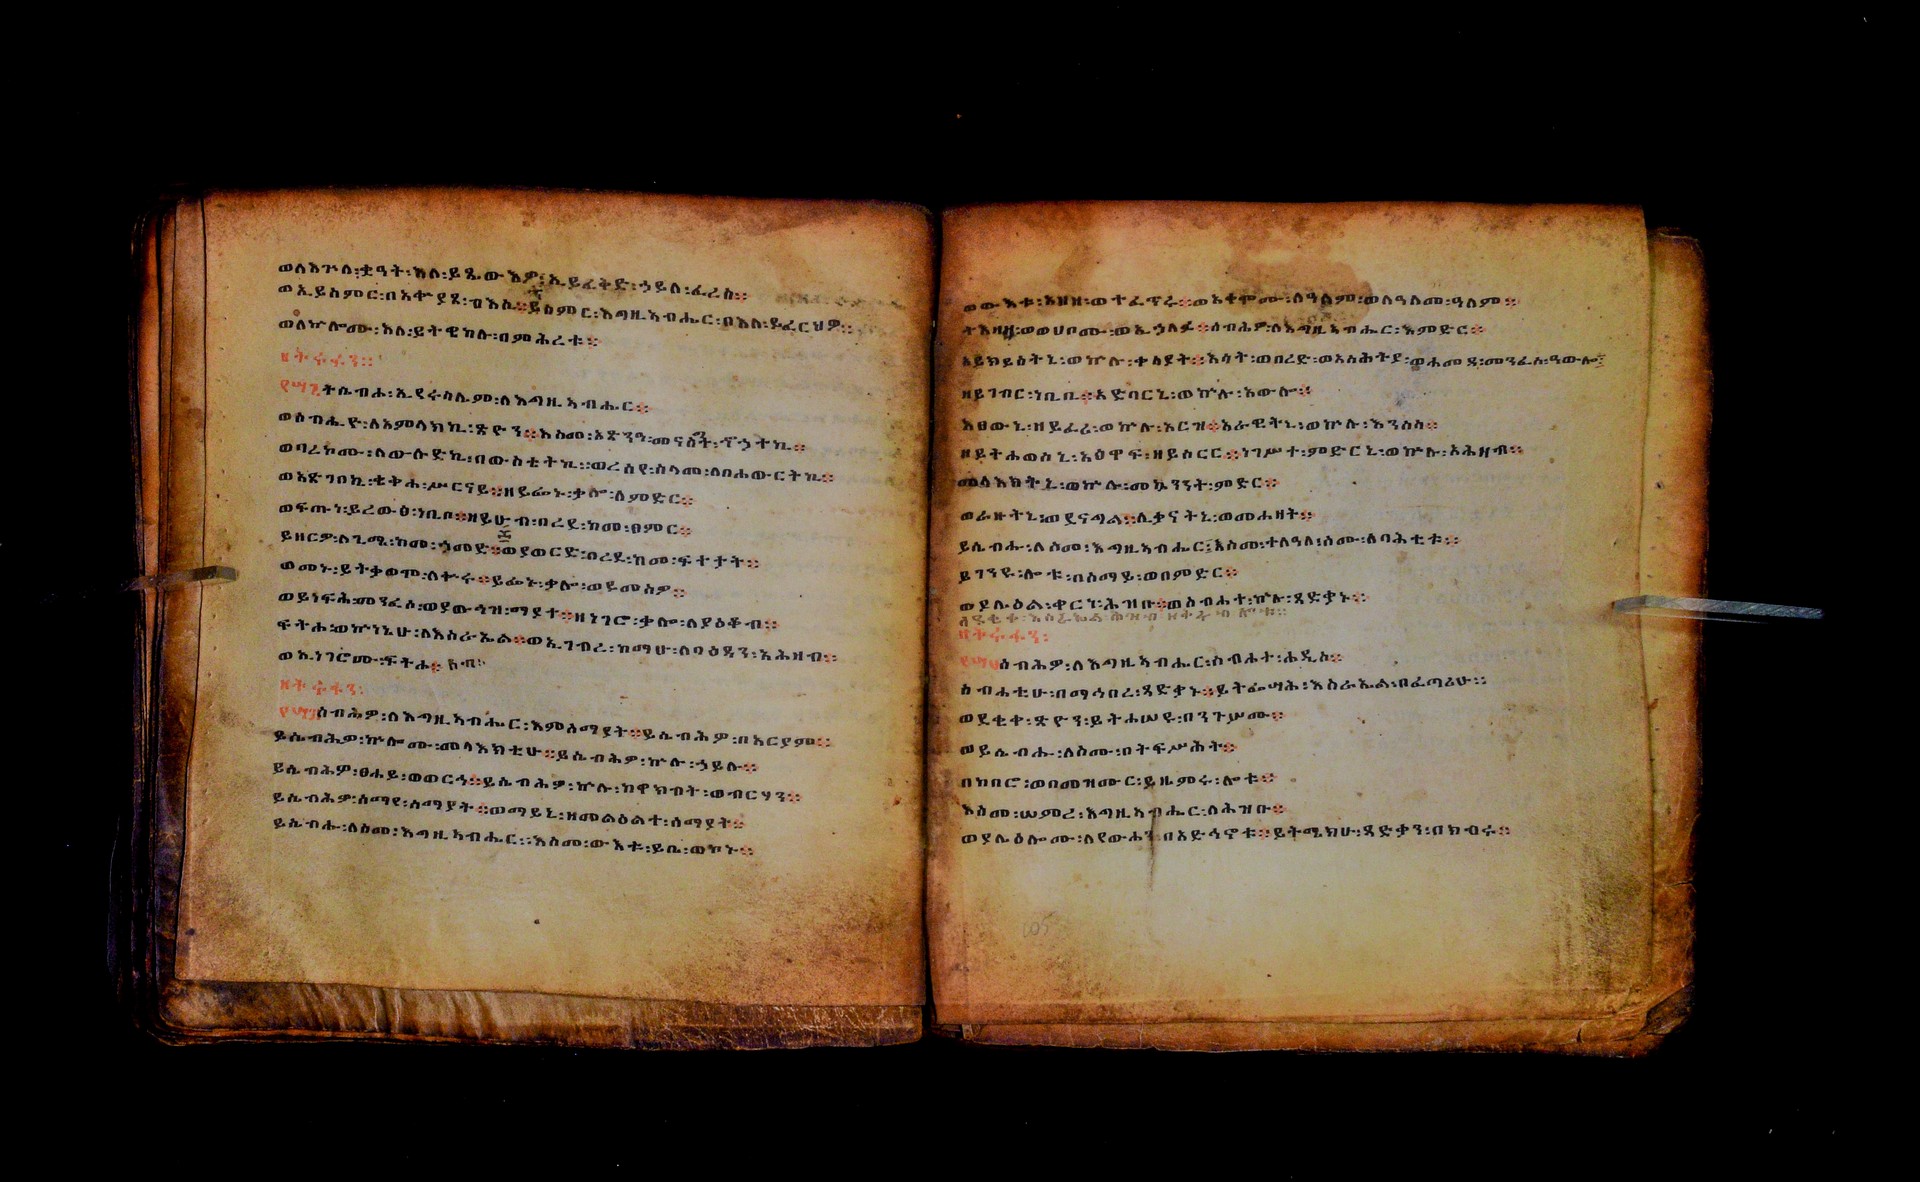 ወለእጕለ፡ቋዓት፡እለ፡ይጼውእዎ፡ኢይፈትድ፡ኃይለ፡ፈረስ።
ወኢይሰምር፡በአቍያጸ፡ብእሲ።ይሰምር፡እግዚአብሔር፡በእለ፡ይፈርህዎ።
ወለኵሎሙ፡እለ፡ይትዌከሉ፡በምሕረቱ።
ዘትሩፋን።
ትሴብሖ፡ኢየሩሳሌም፡ለእግዚአብሔር።
ወሰብሒዮ፡ለአምላክኪ፡ጽዮን።እስመ፡አጽንዓ፡መናስግተ፡ኆኃትኪ።
ወባረኮሙ፡ለውሉድኪ፡በውስቴትኪ።ወረሰየ፡ሰላመ፡ለበሐውርትኪ።
ወአጽገበኪ፡ቄቅሐ፡ሥርናይ።ዘይፌኑ፡ቃሎ፡ለምድር።
ወፍጡነ፡ይረውፅ፡ነቢቡ።ዘይሁብ፡በረደ፡ከመ፡ፀምር።
ይዘርዎ፡ለጊሜ፡ከመ፡ሐመድ።ወያወርድ፡በረደ፡ከመ፡ፍተታት።
ወመኑ፡ይትቃወሞ፡ለቍሩ።ይፌኑ፡ቃሎ፡ወይመስዎ።
ወይነፍሕ፡መንፈሶ፡ወያውኅዝ፡ማያተ።ዘነገሮ፡ቃሎ፡ለያዕቆብ።
ፍትሐ፡ወኵነኔሁ፡ለእስራኤል።ወኢገብረ፡ከማሁ፡ለባዕዳን፡አሕዛብ።
ወኢነገሮሙ፡ፍትሖ።
ዘትሩፋን፡
ሰብሕዎ፡ለእግዚአብሔር፡እምሰማያት።ይሴብሕዎ፡በአርያም።
ይሴብሕዎ፡ኵሎሙ፡መላእክቲሁ።ይሴብሕዎ፡ኵሉ፡ኃይሉ።
ይሴብሕዎ፡ፀሐይ፡ወወርኅ።ይሴብሕዎ፡ኵሉ፡ከዋክብት፡ወብርሃን።
ይሴብሕዎ፡ሰማየ፡ሰማያት።ወማይኒ፡ዘመልዕልተ፡ሰማያት።
ይሴብሑ፡ለስመ፡እግዚአብሔር።እስመ፡ውእቱ፡ይቤ፡ወኮኑ።
ወውእቱ፡አዘዘ፡ወተፈጥሩ።ወአቀሞሙ፡ለዓለም፡ወለዓለመ፡ዓለም።
ትእዛዘ፡ወወሀቦሙ፡ወኢኃለፉ።ሰብሕዎ፡ለእግዚአብሔር፡እምድር።
አይክይስትኒ፡ወኵሉ፡ቀላያት።እሳት፡ወበረድ፡ወአስሐትያ፡ወሐመዳ፡መንፈሰ፡ዓውሎ፤
ዘይገብር፡ነቢቦ።አድባርኒ፡ወኵሉ፡አውግር።
እፀውኒ፡ዘይፈሪ፡ወኵሉ፡አርዝ።አራዊትኒ፡ወኵሉ፡እንስሳ።
ዘይትሐወስኒ፡አዕዋፍ፡ዘይሰርር።ነገሥተ፡ምድርኒ፡ወኵሉ፡አሕዛብ።
መላእክትኒ፡ወኵሉ፡መኳንንት፡ምድር።
ወራዙትኒ፡ወደናግል።ሊቃናትኒ፡ወመሐዛት።
ይሴብሑ፡ለስመ፡እግዚአብሔር፤እስመ፡ተለዓለ፡ስሙ፡ለባሕቲቱ።
ይገንዩ፡ሎቱ፡በሰማይ፡ወበምድር።
ወያሌዕል፡ቀርነ፡ሕዝቡ።ወስብሐተ፡ኵሉ፡ጻድቃኑ።
ለደቂቀ፡እስራኤል፡ሕዝብ፡ዘቅሩብ፡ሎቱ።
ዘትሩፋን፡
ሰብሕዎ፡ለእግዚአብሔር፡ስብሐተ፡ሐዲሰ።
ስብሐቲሁ፡በማኅበረ፡ጻድቃኑ።ይትፌሣሕ፡እስራኤል፡በፈጣሪሁ።
ወደቂቀ፡ጽዮን፡ይትሐሠዩ፡በንጉሦሙ።
ወይሴብሑ፡ለስሙ፡በትፍሥሕት።
በከበሮ፡ወበመዝሙር፡ይዜምሩ፡ሎቱ።
እስመ፡ሠምረ፡እግዚአብሔር፡ለሕዝቡ።
ወያሌዕሎሙ፡ለየውሐን፡በአድኅኖቱ።ይትሜክሁ፡ጻድቃን፡በክብሩ።